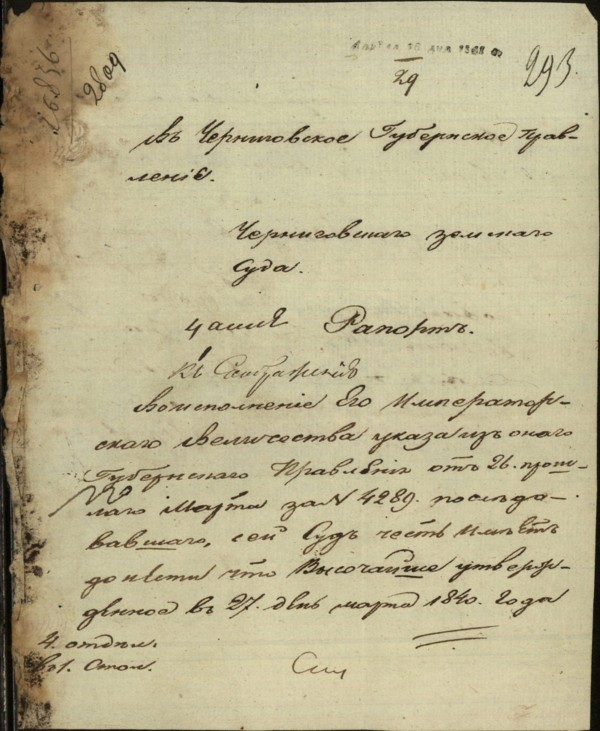 293.
2809
29
Въ Черниговское Губернское Прав-
леніе.
Черниговскаго земскаго
Суда.
Рапортъ.
Во исполненіе Его Император-
скаго Величества указа изъ онаго
Губернскаго Правленія отъ 26. прош-
лаго Марта за N 4289. послѣдо-
вавшаго, сей Судъ честь имѣетъ
донести что Высочайше утверж-
денное въ 27. день марта 1840. Года
4. отдѣл.
въ 1. Стол.